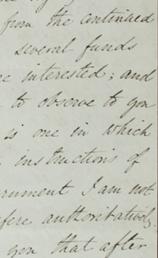 from the continued
several funds
interested; and
to observe to you
is one in which
instructions of
I am not
authoritatively
you that after